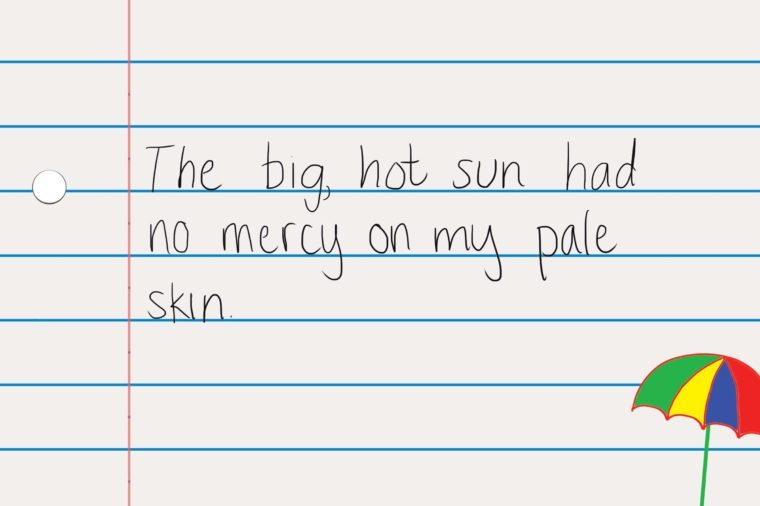 The big, hot sun had
no mercy on my pale
skin.